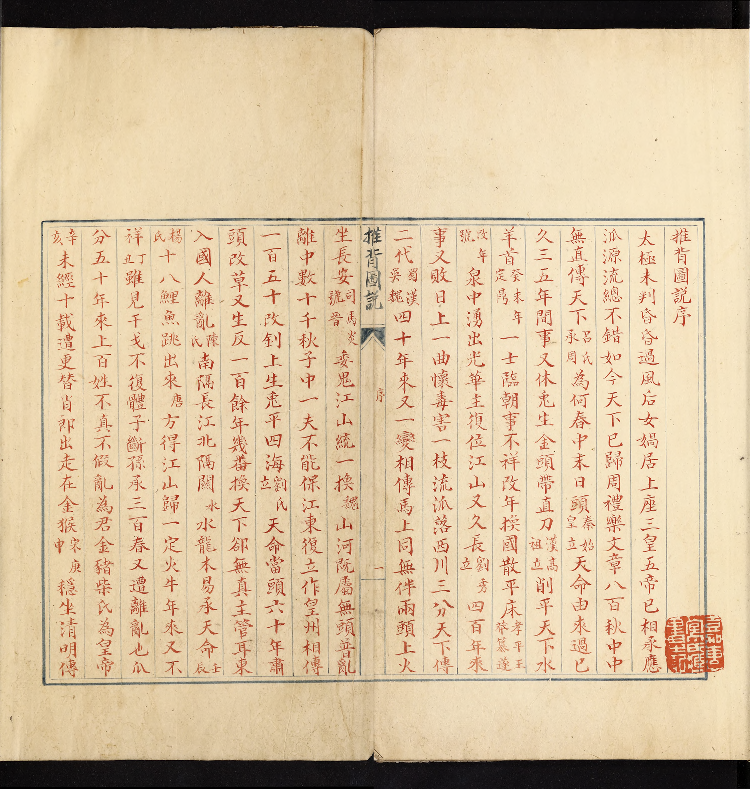 推背圖說序
太極未判昏昏過風后女媧居上座三皇五帝已相承應
派源流總不錯如今天下已歸周禮樂文章八百秋中中
無直傳天下呂氏承周為何春中末日頭秦始皇立天命由來過已
久三五年間事又休兎生金頭帶直刀漢高祖立削平天下水
羊首癸未年定鼎一士臨朝事不祥改年換國散平床孝平王莽篡逆
改年號泉中湧出光華主復位江山又久長劉秀立四百年來
事又敗日上一曲懷毒害一枝流派落西川三分天下傳
二代蜀漢吳魏四十年來又一變相傳馬上同無伴兩頭上火
推背圖說 序 一
坐長安司馬炎號晉委鬼江山統一換魏山河阮屬無頭普亂
離中數十千秋子中一夫不能保江東復立作皇州相傳
一百五十改釗上生兎平四海劉氏立天命當頭六十年肅
頭改草又生反一百餘年幾番換天下卻無真主管耳東
入國人離亂陳氏南隔長江北隔關水水龍木易承天命壬辰
楊氏十八鯉魚跳出來唐方得江山歸一定火牛年來又不
祥丁丑雖見干戈不復體子斷孫承三百春又遭離亂也瓜
分五十年來上百姓不真不假亂為君金豬柴氏為皇帝
辛亥未經十載遭更替肖郎出走在金猴宋庚申穩坐清明傳